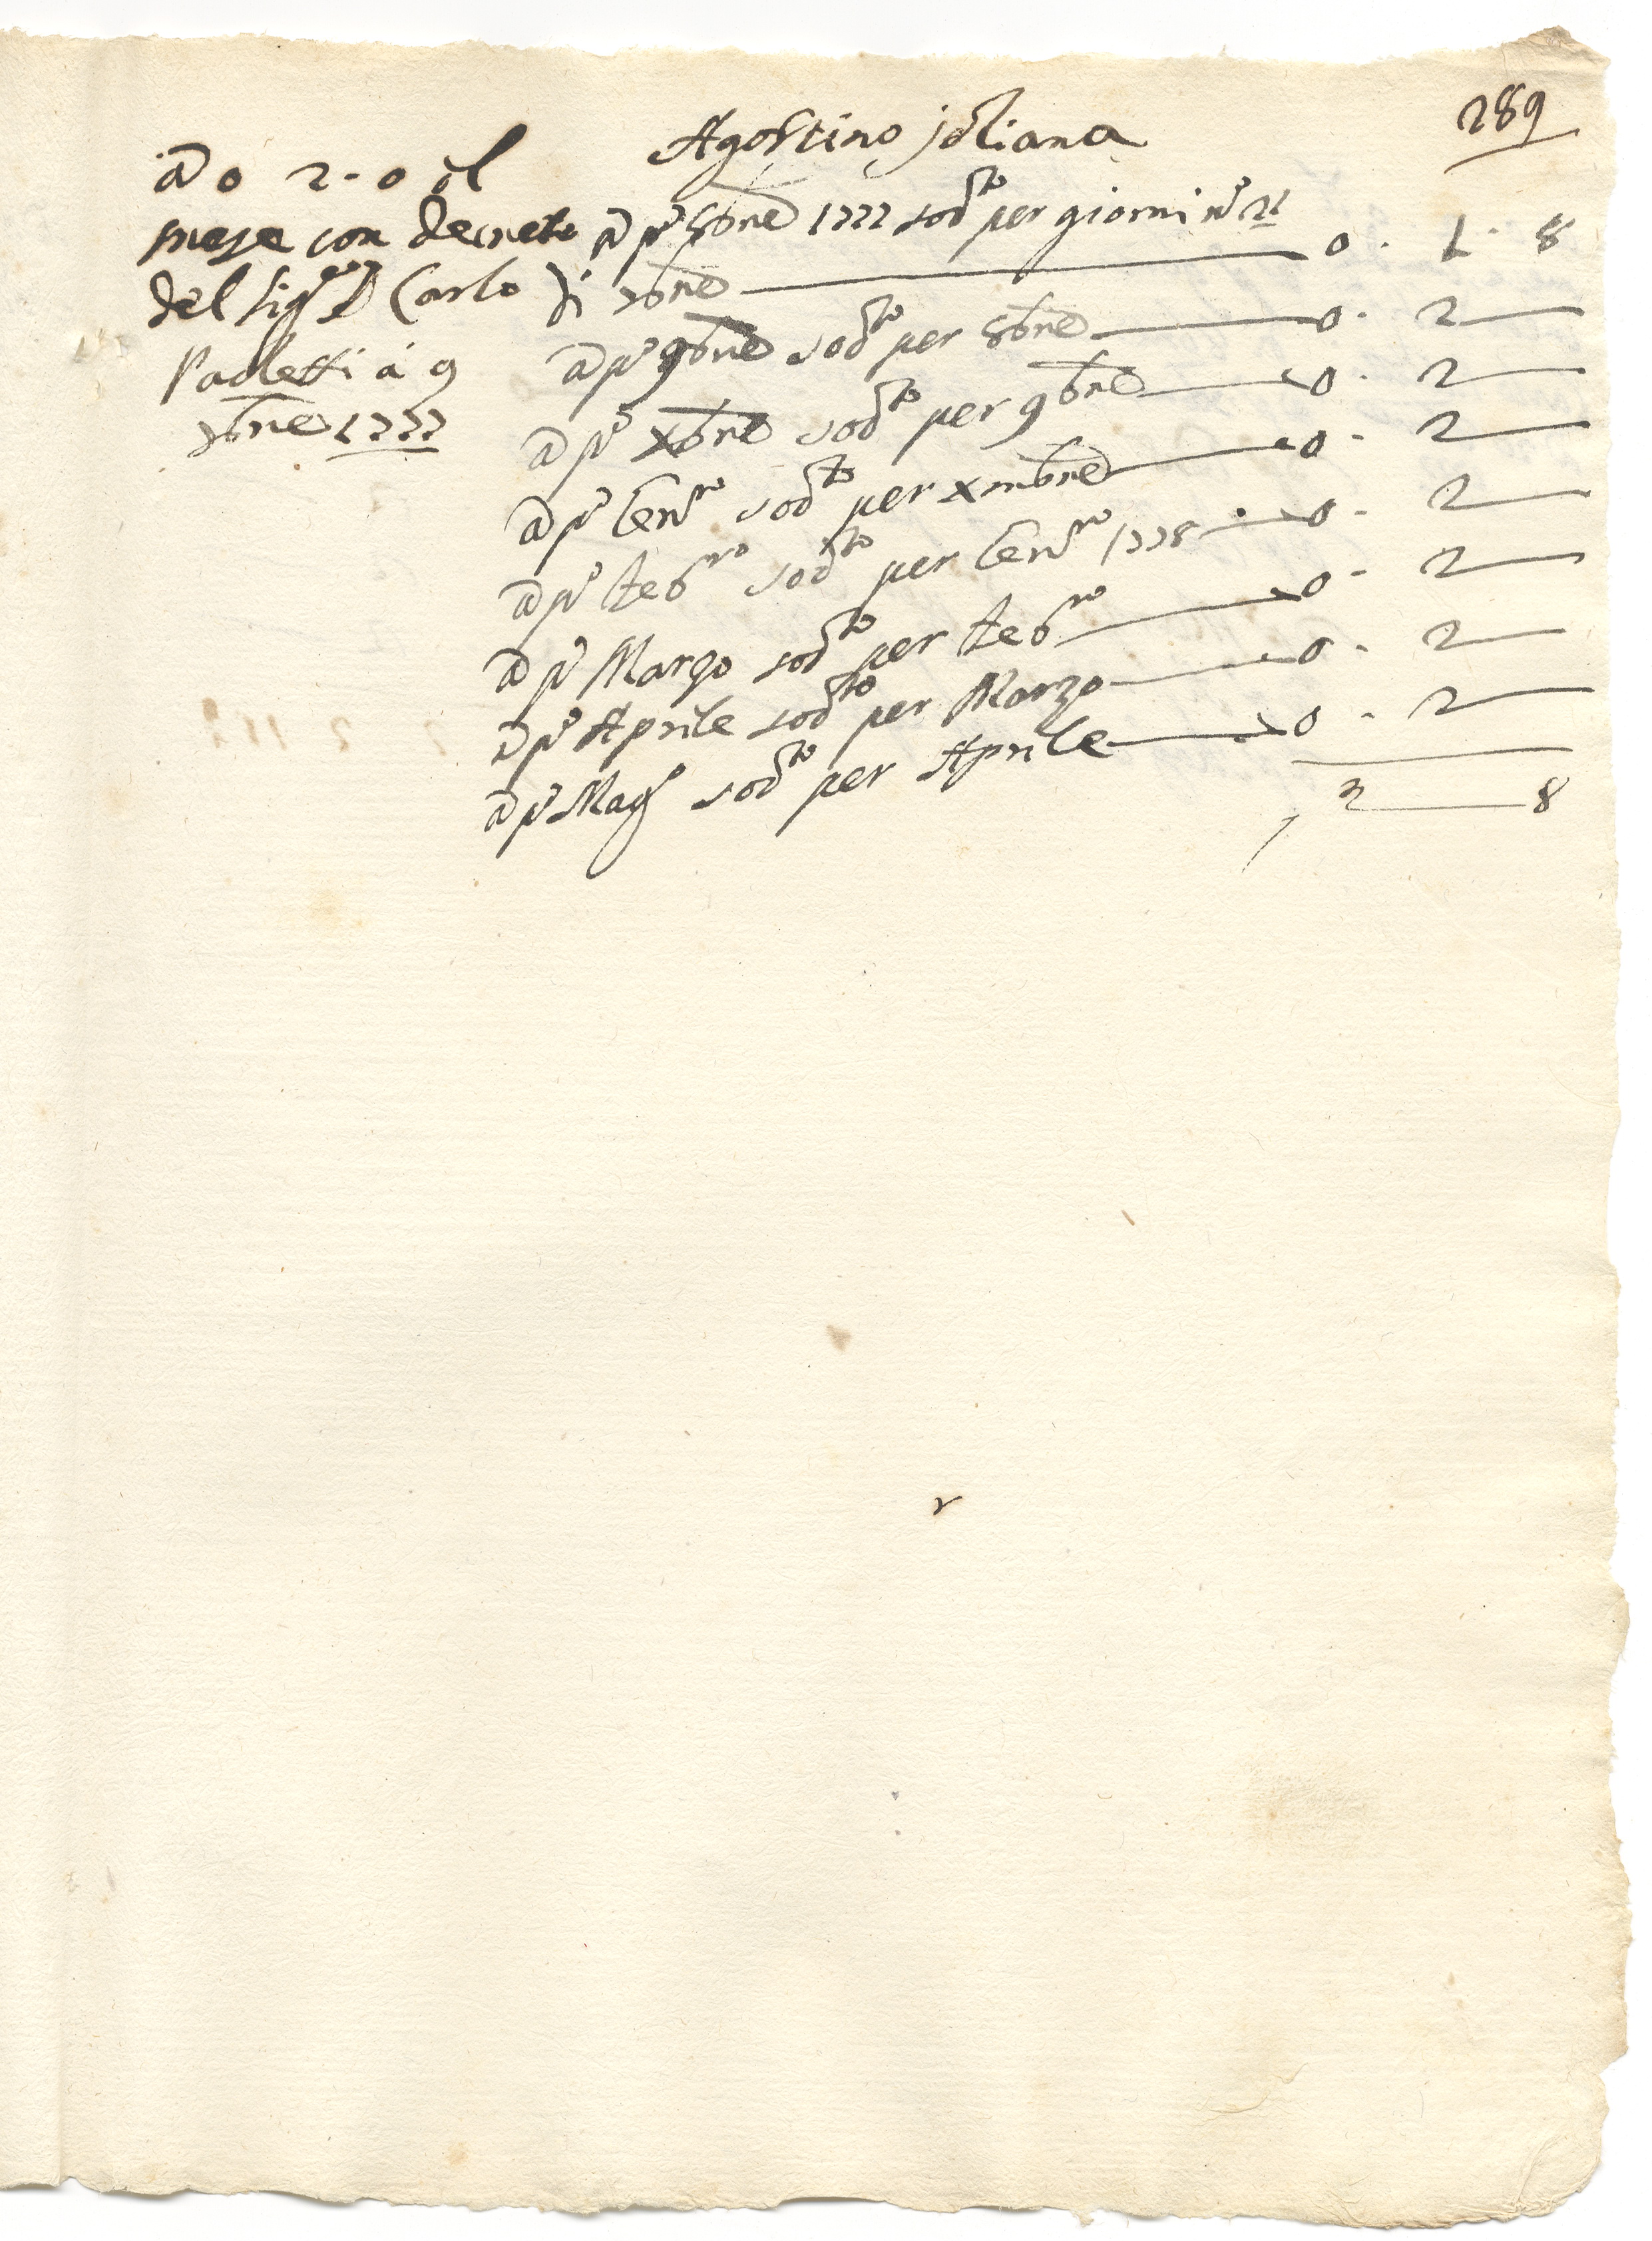 289
Agostino joliana
a o 2-0 al
mese con decreto
del Sigre D Carlo
Paoletti à 9
7bre 1777
a pº 8bre 1777 sodto per giorni nº 21
di 7bre o. 1. 8
a pº 9bre sodto per 8bre o. 2
a pº Xbre sodto per 9bre o. 2
a pº Gennro sodto per Xmbre o. 2
a pº febro sodto per Gennro 1778 o. 2
a pº Marzo sodto per febro o. 2
a pº Aprile sodto per Marzo o. 2
a pº Magº sodto per Aprile o. 2
2 8